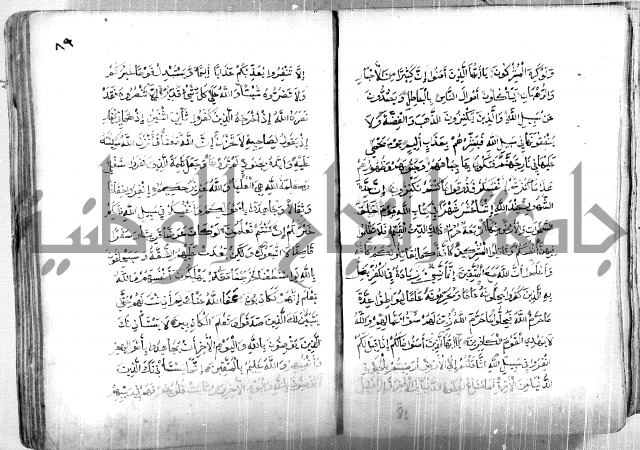 ولو كره المشركون ياأيها الذين آمنوا إن كثيرا من الأحبار
والرهبان ليأكلون أموال الناس بالباطل ويصدون
عن سبيل الله والذين يكنزون الذهب والفضة ولا
ينفقونها في سبيل الله فبشرهم بعذاب أليم يوم يحمى
عليها في نار جهنم فتكوى بها جباههم وجنوبهم وظهورهم
هذا ما كنزتم لأنفسكم فذوقوا ما كنتم تكنزون إن عدة
الشهور عند الله اثنا عشر شهرا في كتاب الله يوم خلق
السموات والأرض منها أربعة حرم ذلك الدين القيم فلا تظلموا
فيهن أنفسكم وقاتلوا المشركين كافة كما يقاتلونكم كافة
واعلموا أن الله مع المتقين إنما النسيء زيادة في الكفر يضل
به الذين كفروا يحلونه عاما ويحرمونه عاما ليواطئوا عدة
ما حرم الله فيحلوا ما حرم الله زين لهم سوء أعمالهم والله
لا يهدي القوم الكافرين يا أيها الذين آمنوا ما لكم إذا قيل لكم
انفروا في سبيل الله اثاقلتم إلى الأرض أرضيتم بالحياة
الدنيا من الآخرة فما متاع الحياة الدنيا في الآخرة إلا قليل
إلا
٨٩
إلا تنفروا يعذبكم عذابا أليما ويستبدل قوما غيركم
ولا تضروه شيئا والله على كل شيء قدير إلا تنصروه فقد
نصره الله إذ أخرجه الذين كفروا ثاني اثنين إذ هما في الغار
إذ يقول لصاحبه لا تحزن إن الله معنا فأنزل الله سكينته
عليه وأيده بجنود لم تروها وجعل كلمة الذين كفروا السفلى
وكلمة الله هي العليا والله عزيز حكيم انفروا خفافا
وثقالا وجاهدوا بأموالكم وأنفسكم في سبيل الله ذلكم
خير لكم إن كنتم تعلمون لو كان عرضا قريبا وسفرا
قاصدا لاتبعوك ولكن بعدت عليهم الشقة وسيحلفون
بالله لو استطعنا لخرجنا معكم يهلكون أنفسهم والله
يعلم إنهم لكاذبون عفا الله عنك لم أذنت لهم حتى
يتبين لك الذين صدقوا وتعلم الكاذبين لا يستأذنك
الذين يؤمنون بالله واليوم الآخر أن يجاهدوا بأموالهم
وأنفسهم والله عليم بالمتقين إنما يستأذنك الذين
لا يؤمنون بالله واليوم الآخر وارتابت قلوبهم فهم في ريبهم
جامعة النجاح الوطنية